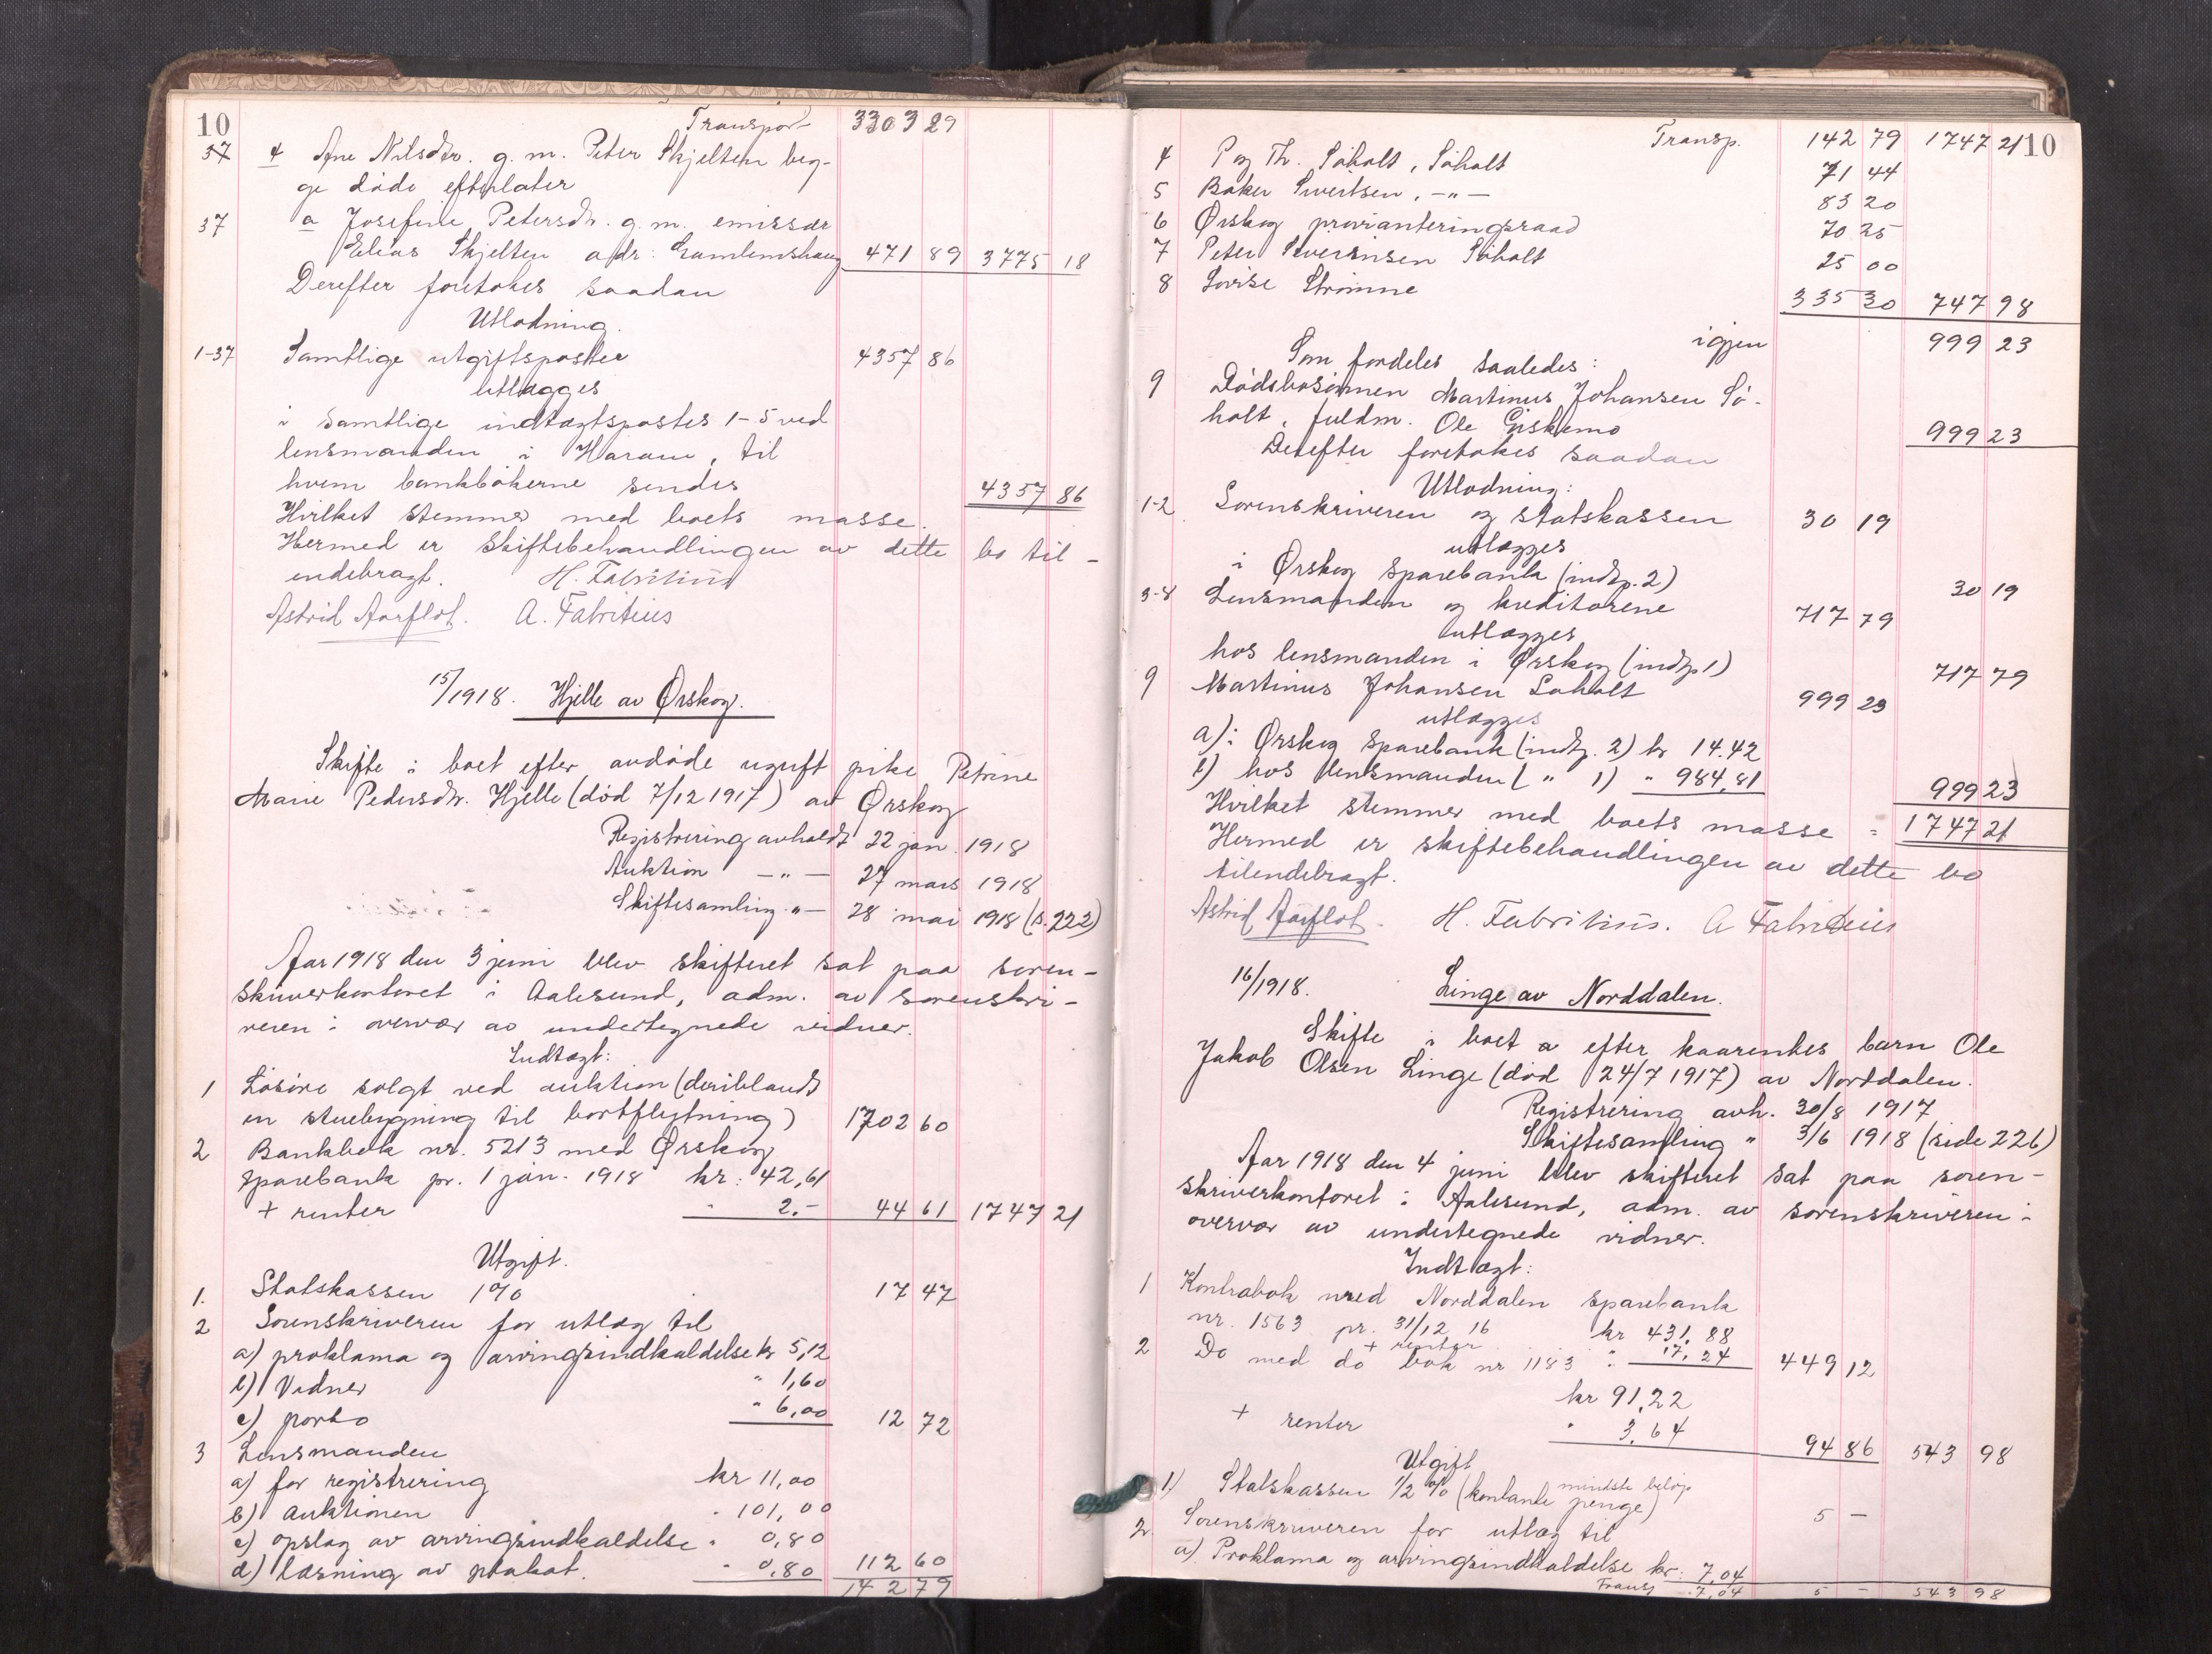 10
Transport 3303 29
37 4 Ane Nilsdtr. g. m. Peter Skjelten beg-
ge døde efterlater
37 a Josefine Petersdtr. g. m. emissær
Elias Skjelten adr: Gamlemshaug 471 89 3775 18
Derefter foretokes saadan
Utlodning.
1-37 Samtlige utgiftsposter 4357 86
utlægges
i samtlige indtægtsposter 1-5 ved
lensmanden i Haram, til
hvem bankbøkerne sendes 4357 86
Hvilket stemmer med boets masse.
Hermed er skiftebehandlingen av dette bo til-
endebragt. H. Fabritius
Astrid Aarflot. A. Fabritius
15/1918. Hjelle av Ørskog.
Skifte i boet efter avdøde ugift pike Petrine
Marie Pedersdtr. Hjelle (død 7/12 1917) av Ørskog
Registrering avholdt 22 jan. 1918
Auktion —"— 27 mars 1918
Skiftesamling "— 28 mai 1918 (s. 222)
Aar 1918 den 3 juni blev skifteret sat paa soren-
skriverkontoret i Aalesund, adm. av sorenskri-
veren i overvær av undertegnede vidner.
Indtægt:
1 Løsøre solgt ved auktion (deriblandt
en stuebygning til bortflytning) 1702 60
2 Bankbok nr. 5213 med Ørskog
sparebank pr. 1 jan. 1918 kr: 42,61
+ renter " 2.- 44 61 1747 21
Utgift.
1. Statskassen 1% 17 47
2 Sorenskriveren for utlæg til
a) proklama og arvingsindkaldelse kr 5,12
b) Vidner " 1,60
c) porto " 6,00 12 72
3 Lensmanden
a) for registrering kr 11,00
b) auktionen " 101,00
c) opslag av arvingsindkaldelse " 0,80
d) læsning av plakat. " 0,80 112 60
142 79
Transp. 142 79 1747 21 10
4 P og Th. Søholt, Søholt 71 44
5 Baker Sivertsen, —"— 83 20
6 Ørskog provianteringsraad 70 25
7 Peter Severinsen Søholt 25 00
8 Lovise Strømme 335 30 747 98
igjen 999 23
Som fordeles saaledes:
9 Dødsbosønnen Martinus Johansen Sø-
holt, fuldm. Ole Giskemo 999 23
Derefter foretokes saadan
Utlodning:
1-2 Sorenskriveren og statskassen 30 19
utlægges
i Ørskog sparebank (indtp. 2) 30 19
3-8 Lensmanden og kreditorene 717 79
utlægges
hos lensmanden i Ørskog (indtp 1) 717 79
9 Martinus Johansen Søholt 999 23
utlægges
a) i Ørskog sparebank (indtp. 2) kr 14.42
b) hos lensmanden ( " 1) " 984,81 999 23
Hvilket stemmer med boets masse = 1747 21
Hermed er skiftebehandlingen av dette bo
tilendebragt.
Astrid Aarflot. H. Fabritius. A Fabritius
16/1918. Linge av Norddalen.
Skifte i boet a efter kaarenkes barn Ole
Jakob Olsen Linge (død 24/7 1917) av Norddalen.
Registrering avh. 30/8 1917
Skiftesamling " 3/6 1918 (side 226)
Aar 1918 den 4 juni blev skifteret sat paa soren-
skriverkontoret i Aalesund, adm. av sorenskriveren i
overvær av undertegnede vidner.
Indtægt:
1 Kontrabok med Norddalen sparebank
nr. 1563 pr. 31/12 16 kr 431,88
+ renter " 17,24 449 12
2 Do med do bok nr 1183 :
kr 91,22
+ renter " 3,64 94 86 543 98
Utgift
1) Statskassen 1/2 % (kontante penge) mindste beløp 5 —
2. Sorenskriveren for utlæg til
a) Proklama og arvingsindkaldelse kr: 7,04
Transp 7,04 5 — 543 98